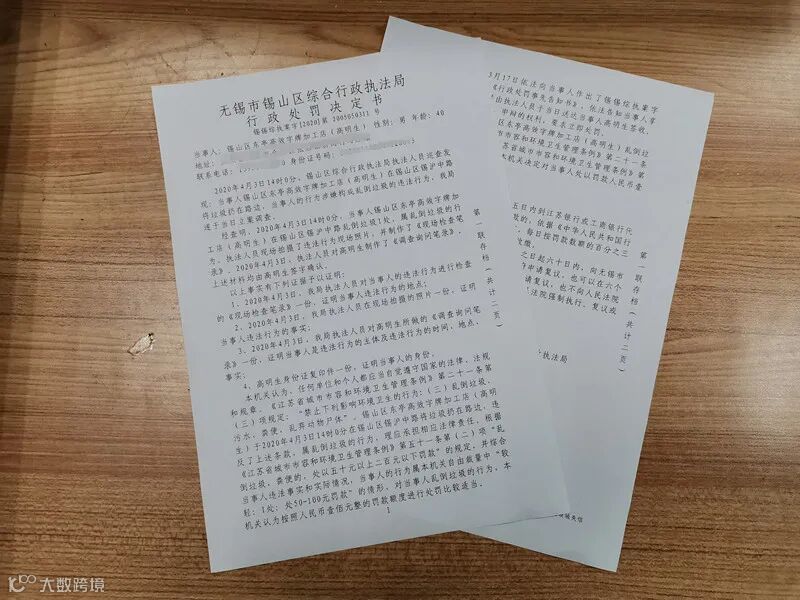 无锡市锡山区综合行政执法局
行政处罚决定书
锡锡综执案字[2020]第 2005050311 号
当事人：锡山区东亭高效字牌加工店（高明生）性别：男 年龄：40
地址：
联系电话： 身份证号码：
2020年4月3日14时0分，锡山区综合行政执法局执法人员巡查发
现：当事人锡山区东亭高效字牌加工店（高明生）在锡山区锡沪中路
将垃圾扔在路边，当事人的行为涉嫌构成乱倒垃圾的违法行为，我局
遂于当日立案调查。
检查明，2020年4月3日14时0分，当事人锡山区东亭高效字牌加
工店（高明生）在锡山区锡沪中路乱倒垃圾1处，属乱倒垃圾的行
为。执法人员现场拍摄了违法行为现场照片，并制作了《现场检查笔
录》，2020年4月3日，执法人员对高明生制作了《调查询问笔录》，
上述材料均由高明生签字确认。
以上事实有下列证据予以证明：
1、2020年4月3日，我局执法人员对当事人的违法行为进行检查
的《现场检查笔录》一份，证明当事人违法行为的地点；
2、2020年4月3日，我局执法人员在现场拍摄的照片一份，证明
当事人违法行为的事实；
3、2020年4月3日，我局执法人员对高明生所做的《调查询问笔
录》一份，证明当事人是违法行为的主体及违法行为的时间、地点、
事实；
4、高明生身份证复印件一份，证明当事人的身份。
本机关认为，任何单位和个人都应当自觉遵守国家的法律、法规
和规章。《江苏省城市市容和环境卫生管理条例》第二十一条第
（三）项规定：“禁止下列影响环境卫生的行为：（三）乱倒垃圾、
污水、粪便，乱弃动物尸体”。锡山区东亭高效字牌加工店（高明
生）于2020年4月3日14时0分在锡山区锡沪中路将垃圾扔在路边，违
反了上述条款，属乱倒垃圾的行为，理应承担相应法律责任，根据
《江苏省城市市容和环境卫生管理条例》第五十一条第（二）项“乱
倒垃圾、粪便的，处以五十元以上二百元以下罚款”的规定，并综合
当事人违法事实和实际情况，当事人的行为属本机关自由裁量中“较
轻：1处；处50-100元罚款”的情形，对当事人乱倒垃圾的行为，本
机关认为按照人民币壹佰元整的罚款额度进行处罚比较适当。
1
第一联存档（共计二页）
3月17日依法向当事人作出了锡锡综执案字
《行政处罚事先告知书》，依法告知当事人享
由执法人员于当日送达当事人高明生签收。
申辩的权利，要求立即处罚。
区东亭高效字牌加工店（高明生）乱倒垃
市市容和环境卫生管理条例》第二十一条
苏省城市市容和环境卫生管理条例》第
本机关决定对当事人处以罚款人民币壹
五日内到江苏银行或工商银行代
款的，依据《中华人民共和国行
，每日按罚款数额的百分之三
发缴。
之日起六十日内，向无锡市
申请复议，也可以在六个
请复议，也不向人民法院
法院强制执行。复议或
执法局
第一联存档（共计二页）
诚失信
大数跨境